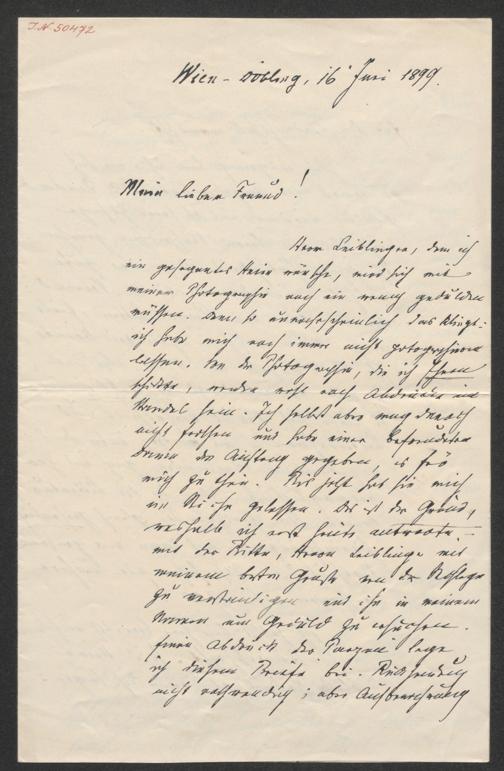 J.N. 50472
Wien – Döbling, 16 Juni 1899.
Mein lieber Freund!
Herr Leiblinger, dem ich
ein gesegnetes Heim wünsche, wird sich mit
meiner Photographie noch ein wenig gedulden
müssen. Denn so unwahrscheinlich das klingt:
ich habe mich noch immer nicht photographieren
lassen. Von der Photographie, die ich Ihnen
schickte, werden wohl noch Abdrücke im
Handel sein. Ich selbst aber mag danach
nicht forschen und habe einer befreundeten
Dame den Auftrag gegeben, es für
mich zu thun. Bis jetzt hat sie mich
im Stiche gelassen. Das ist der Grund,
weshalb ich erst heute antworte –
mit der Bitte, Herrn Leiblinger mit
meinem besten Gruße von der Sachlage
zu verständigen und ihn in meinem
Namen um Geduld zu ersuchen.
Einen Abdruck der Parzen lege
ich diesem Briefe bei. Rücksendung
nicht nothwendig; aber Aufbewahrung